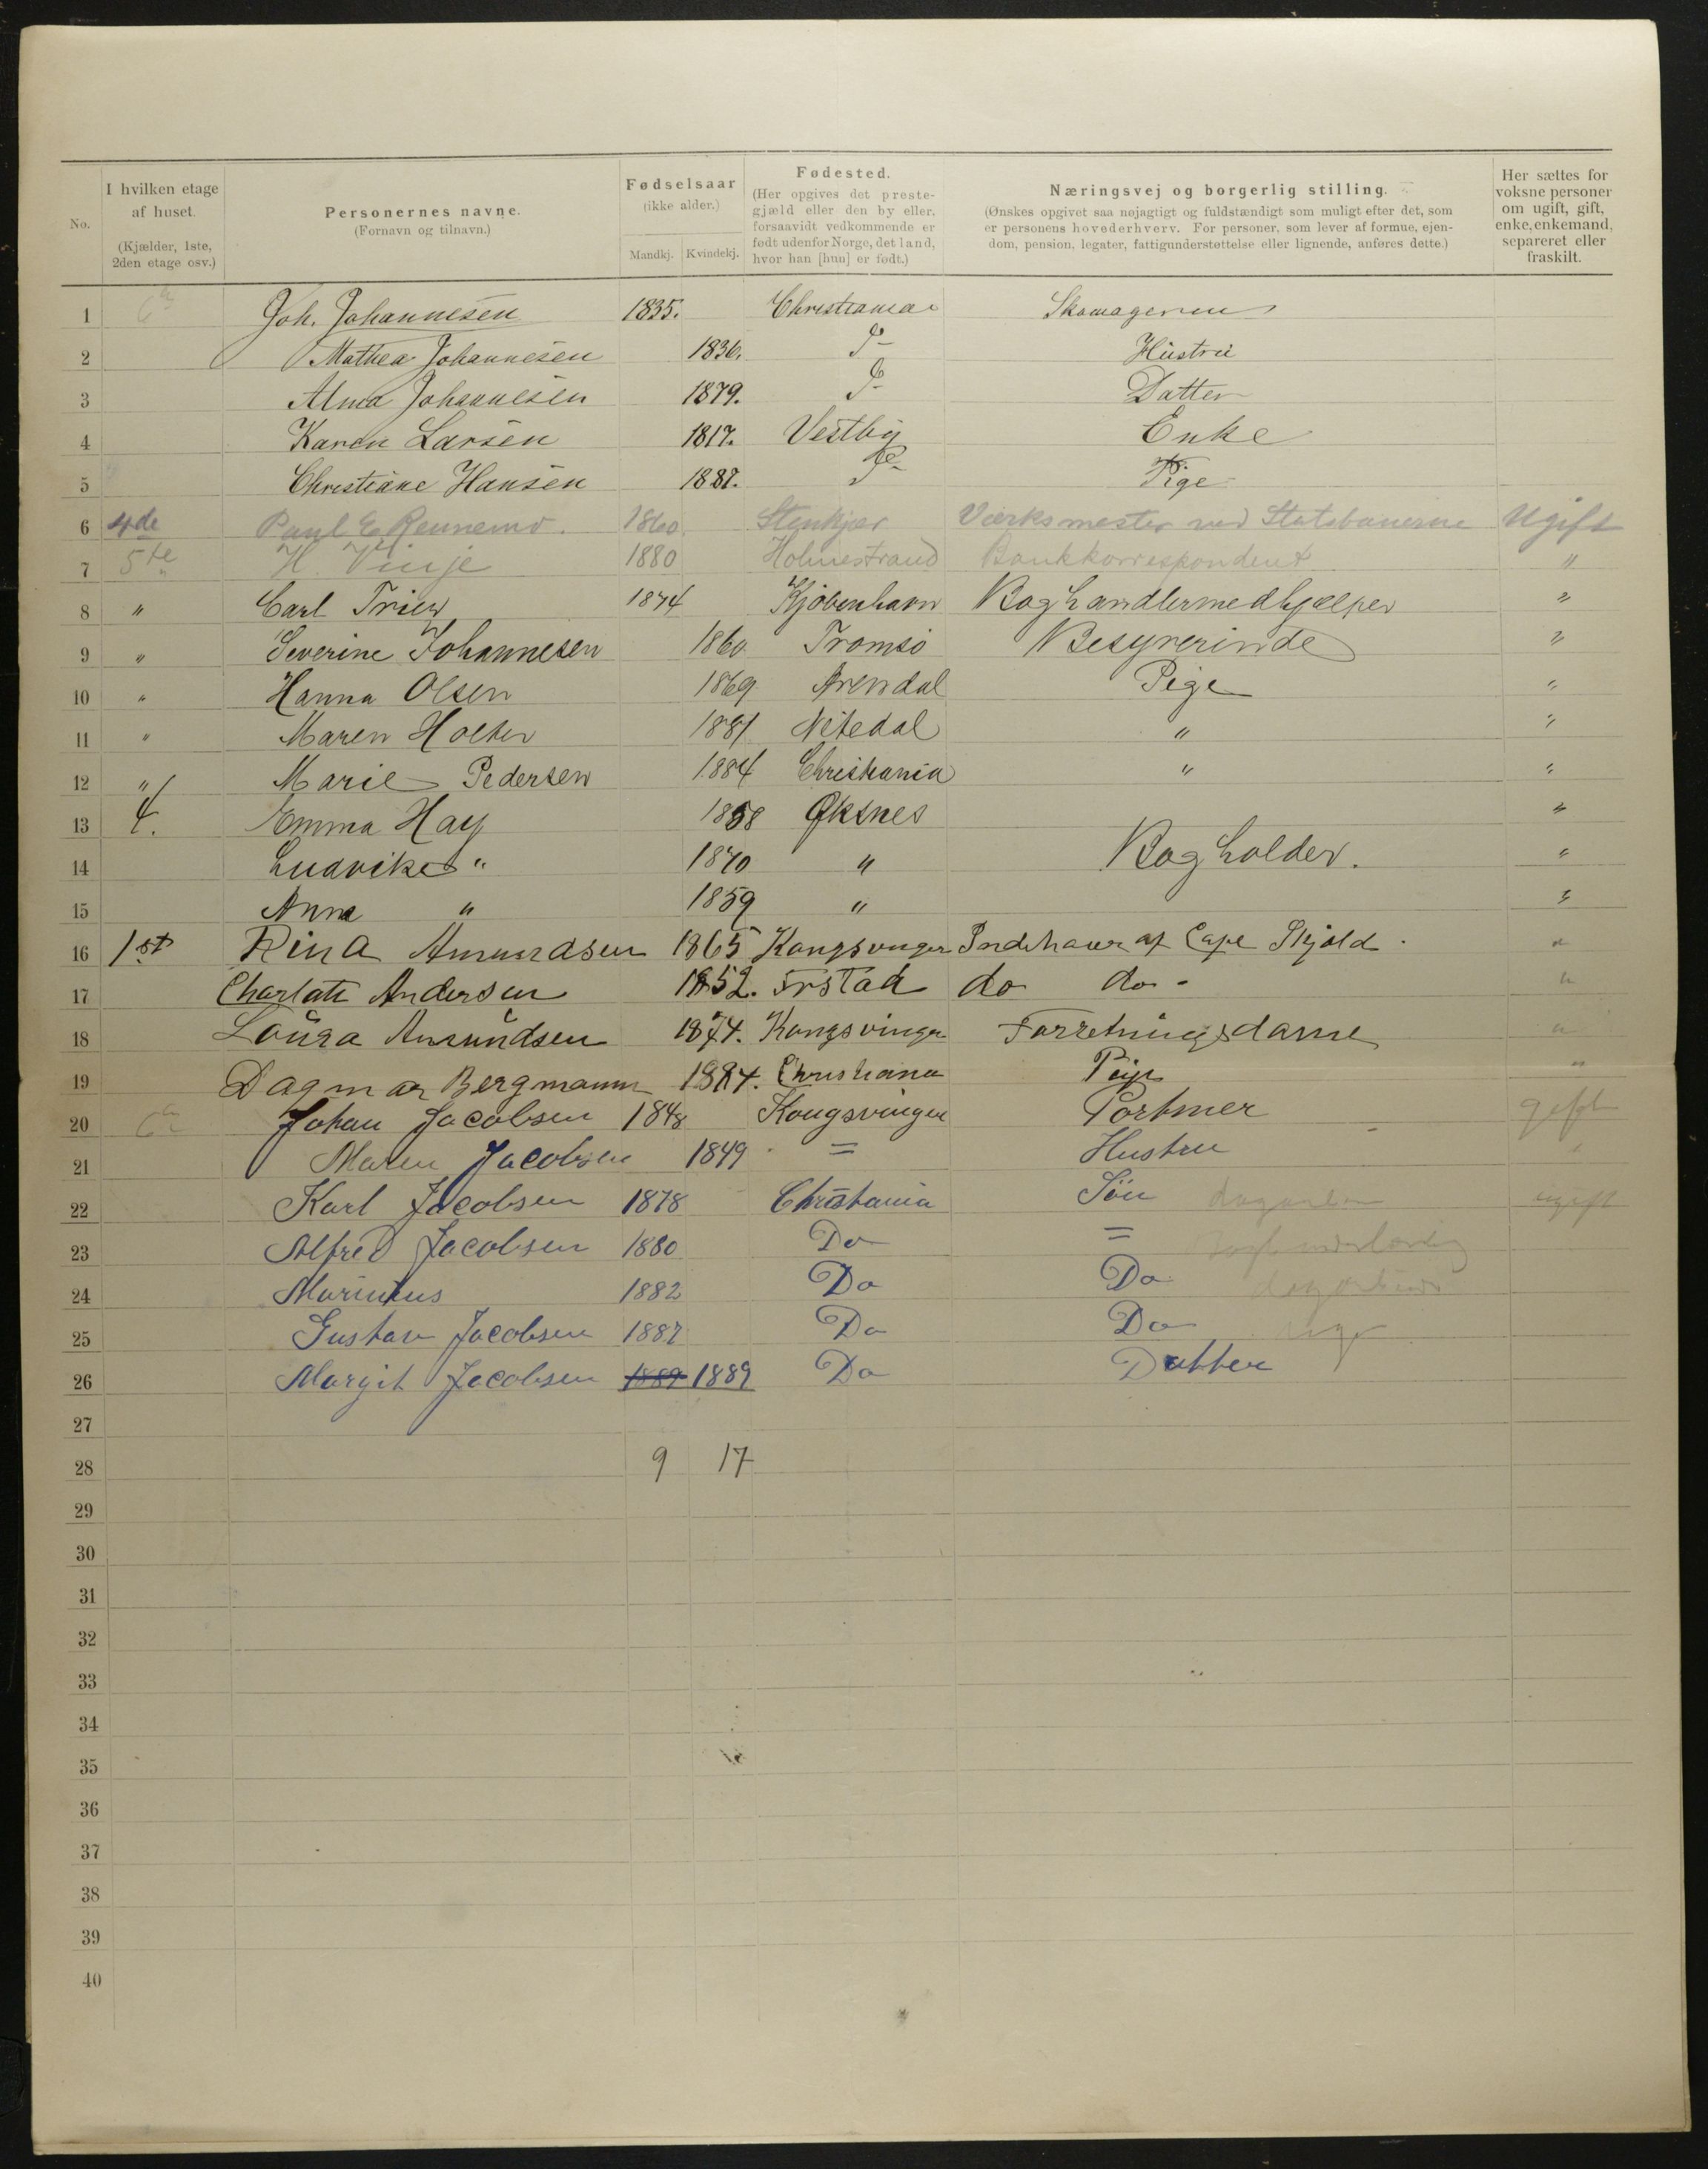 No. | I hvilken etage af huset. (Kjælder, 1ste, 2den etage osv.) | Personernes navne. (Fornavn og tilnavn.) | Fødselsaar (ikke alder.) Mandkj. Kvindekj. | Fødested. (Her opgives det prestegjæld eller den by eller, forsaavidt vedkommende er født udenfor Norge, det land, hvor han [hun] er født.) | Næringsvej og borgerlig stilling. (Ønskes opgivet saa nøjagtigt og fuldstændigt som muligt efter det, som er personens hovederhverv. For personer, som lever af formue, ejendom, pension, legater, fattigunderstøttelse eller lignende, anføres dette.) | Her sættes for voksne personer om ugift, gift, enke, enkemand, separeret eller fraskilt.
1 Joh. Johannesen 1835. Christiania
2 Mathea Johannesen 1836. Hustru
3 Alma Johannesen 1879. Datter
4 Karen Larsen 1817. Vestby Enke
5 Christiane Hansen 1887. Pige
6 4de Paul E Rennemo. 1860 Stenkjær Værksmester ved Statsbanerne Ugift
7 5te H. Vinje 1880 Holmestrand Bankkorrespondent "
8 " Carl Trier 1874 Kjøbenhavn Boghandlermedhjælper "
9 " Severine Johannesen 1860 Tromsø Bestyrerinde "
10 " Hanna Olsen 1869 Arendal Pige "
11 " Maren Holter 1881 Nitedal " "
12 " Marie Pedersen 1884 Christiania " "
13 4. Emma Hay 1858 Øksnes "
14 Ludvikke " 1870 " Bogholder. "
15 Anna " 1859 " "
16 1st Rina Amundsen 1865 Kongsvinger Indehaver af Cafe Skjold "
17 Charlotte Andersen 1852. do do - "
18 Laura Amundsen 1874. Kongsvinger Forretningsdame "
19 Dagmar Bergmann 1884. Christiania Pige "
20 Johan Jacobsen 1848 Kongsvinger Portner gift
21 Maren Jacobsen 1849 = Hustru "
22 Karl Jacobsen 1878 Christiania Søn ugift
23 Alfred Jacobsen 1880 Do =
24 Marinius 1882 Do Do
25 Gustav Jacobsen 1887 Do Do
26 Margit Jacobsen 1889 1889 Do Datter
27
28 9 17
29
30
31
32
33
34
35
36
37
38
39
40